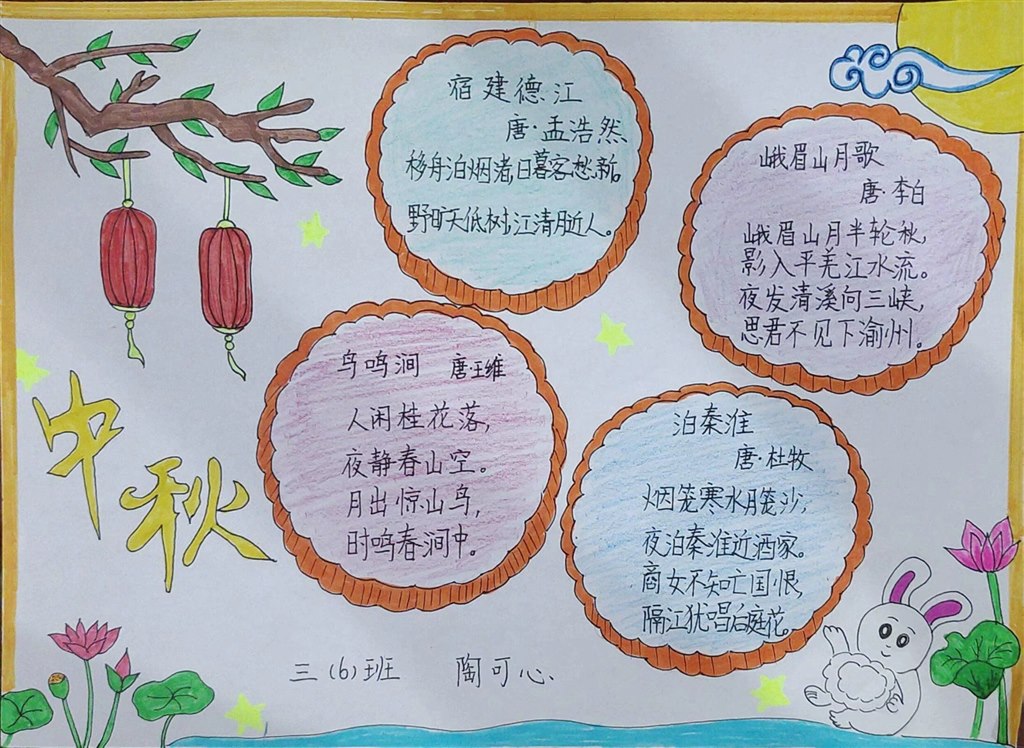 宿建德江
唐·孟浩然
移舟泊烟渚,日暮客愁新。
野旷天低树,江清月近人。
峨眉山月歌
唐·李白
峨眉山月半轮秋,
影入平羌江水流。
夜发清溪向三峡,
思君不见下渝州。
鸟鸣涧 唐·王维
人闲桂花落,
夜静春山空。
月出惊山鸟,
时鸣春涧中。
泊秦淮
唐·杜牧
烟笼寒水月笼沙,
夜泊秦淮近酒家。
商女不知亡国恨,
隔江犹唱后庭花。
中秋
三(6)班 陶可心